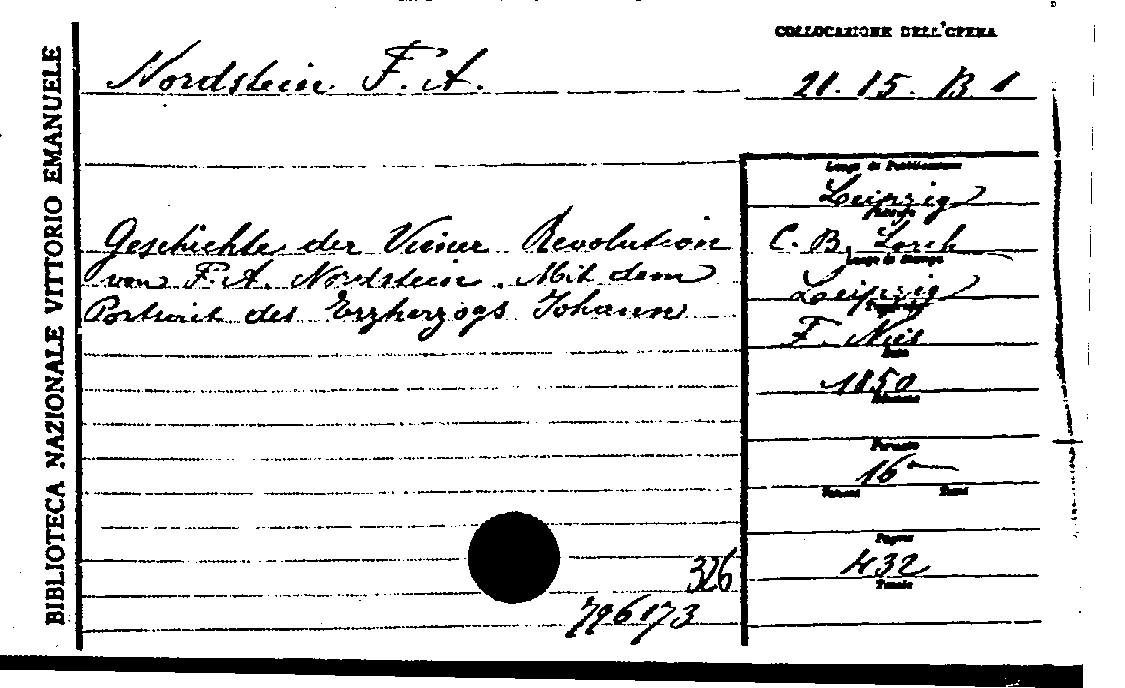 BIBLIOTECA NAZIONALE VITTORIO EMANUELE
COLLOCAZIONE DELL'OPERA
Nordstein F. A.
21. 15. B 1
Luogo di Pubblicazione
Leipzig
Geschichte der Wiener Revolution
C. B. Lorck
von F. A. Nordstein. Mit dem
Luogo di Stampa
Leipzig
Portrait des Erzherzogs Johann
F. Nies
Data
1850
Edizione
Formato
16°
Pagine
432
326
796173